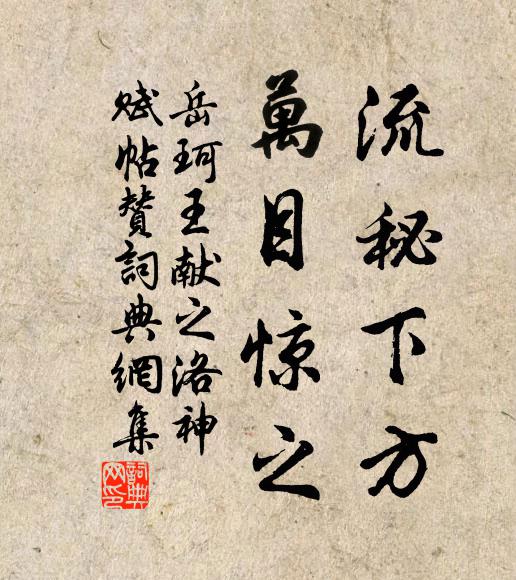 流秘下方
萬目惊之
岳珂王献之洛神
赋帖赞詞典網集
詞典
网印